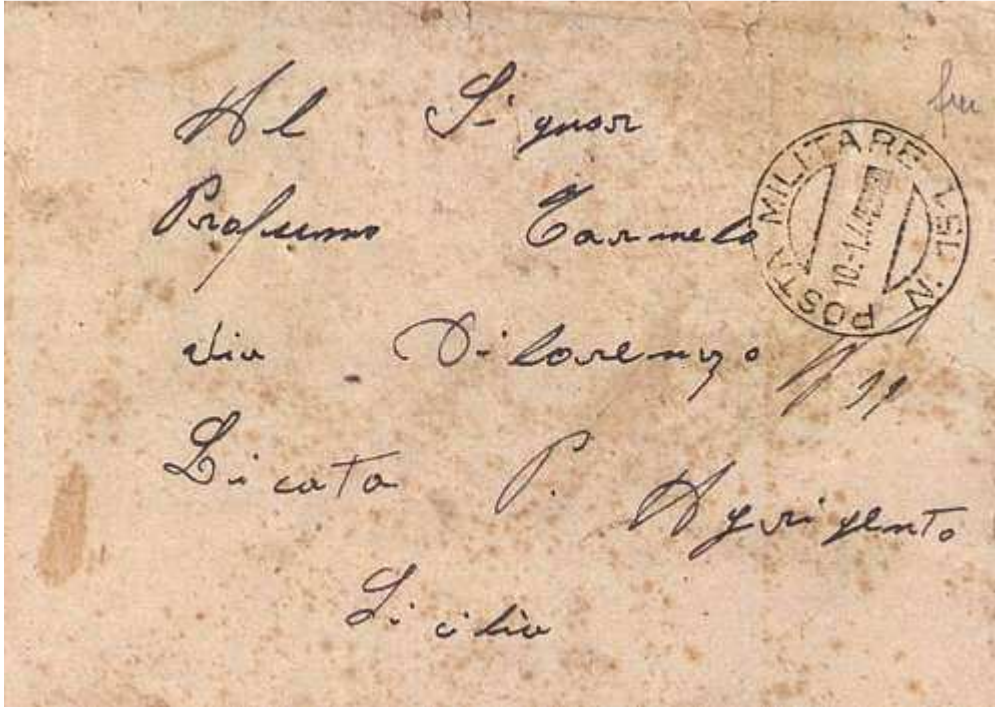 Al Signor
Profumo Carmelo
via Di Lorenzo N 11
Licata P. Agrigento
Sicilia
POSTA MILITARE N. 151
10.1.4